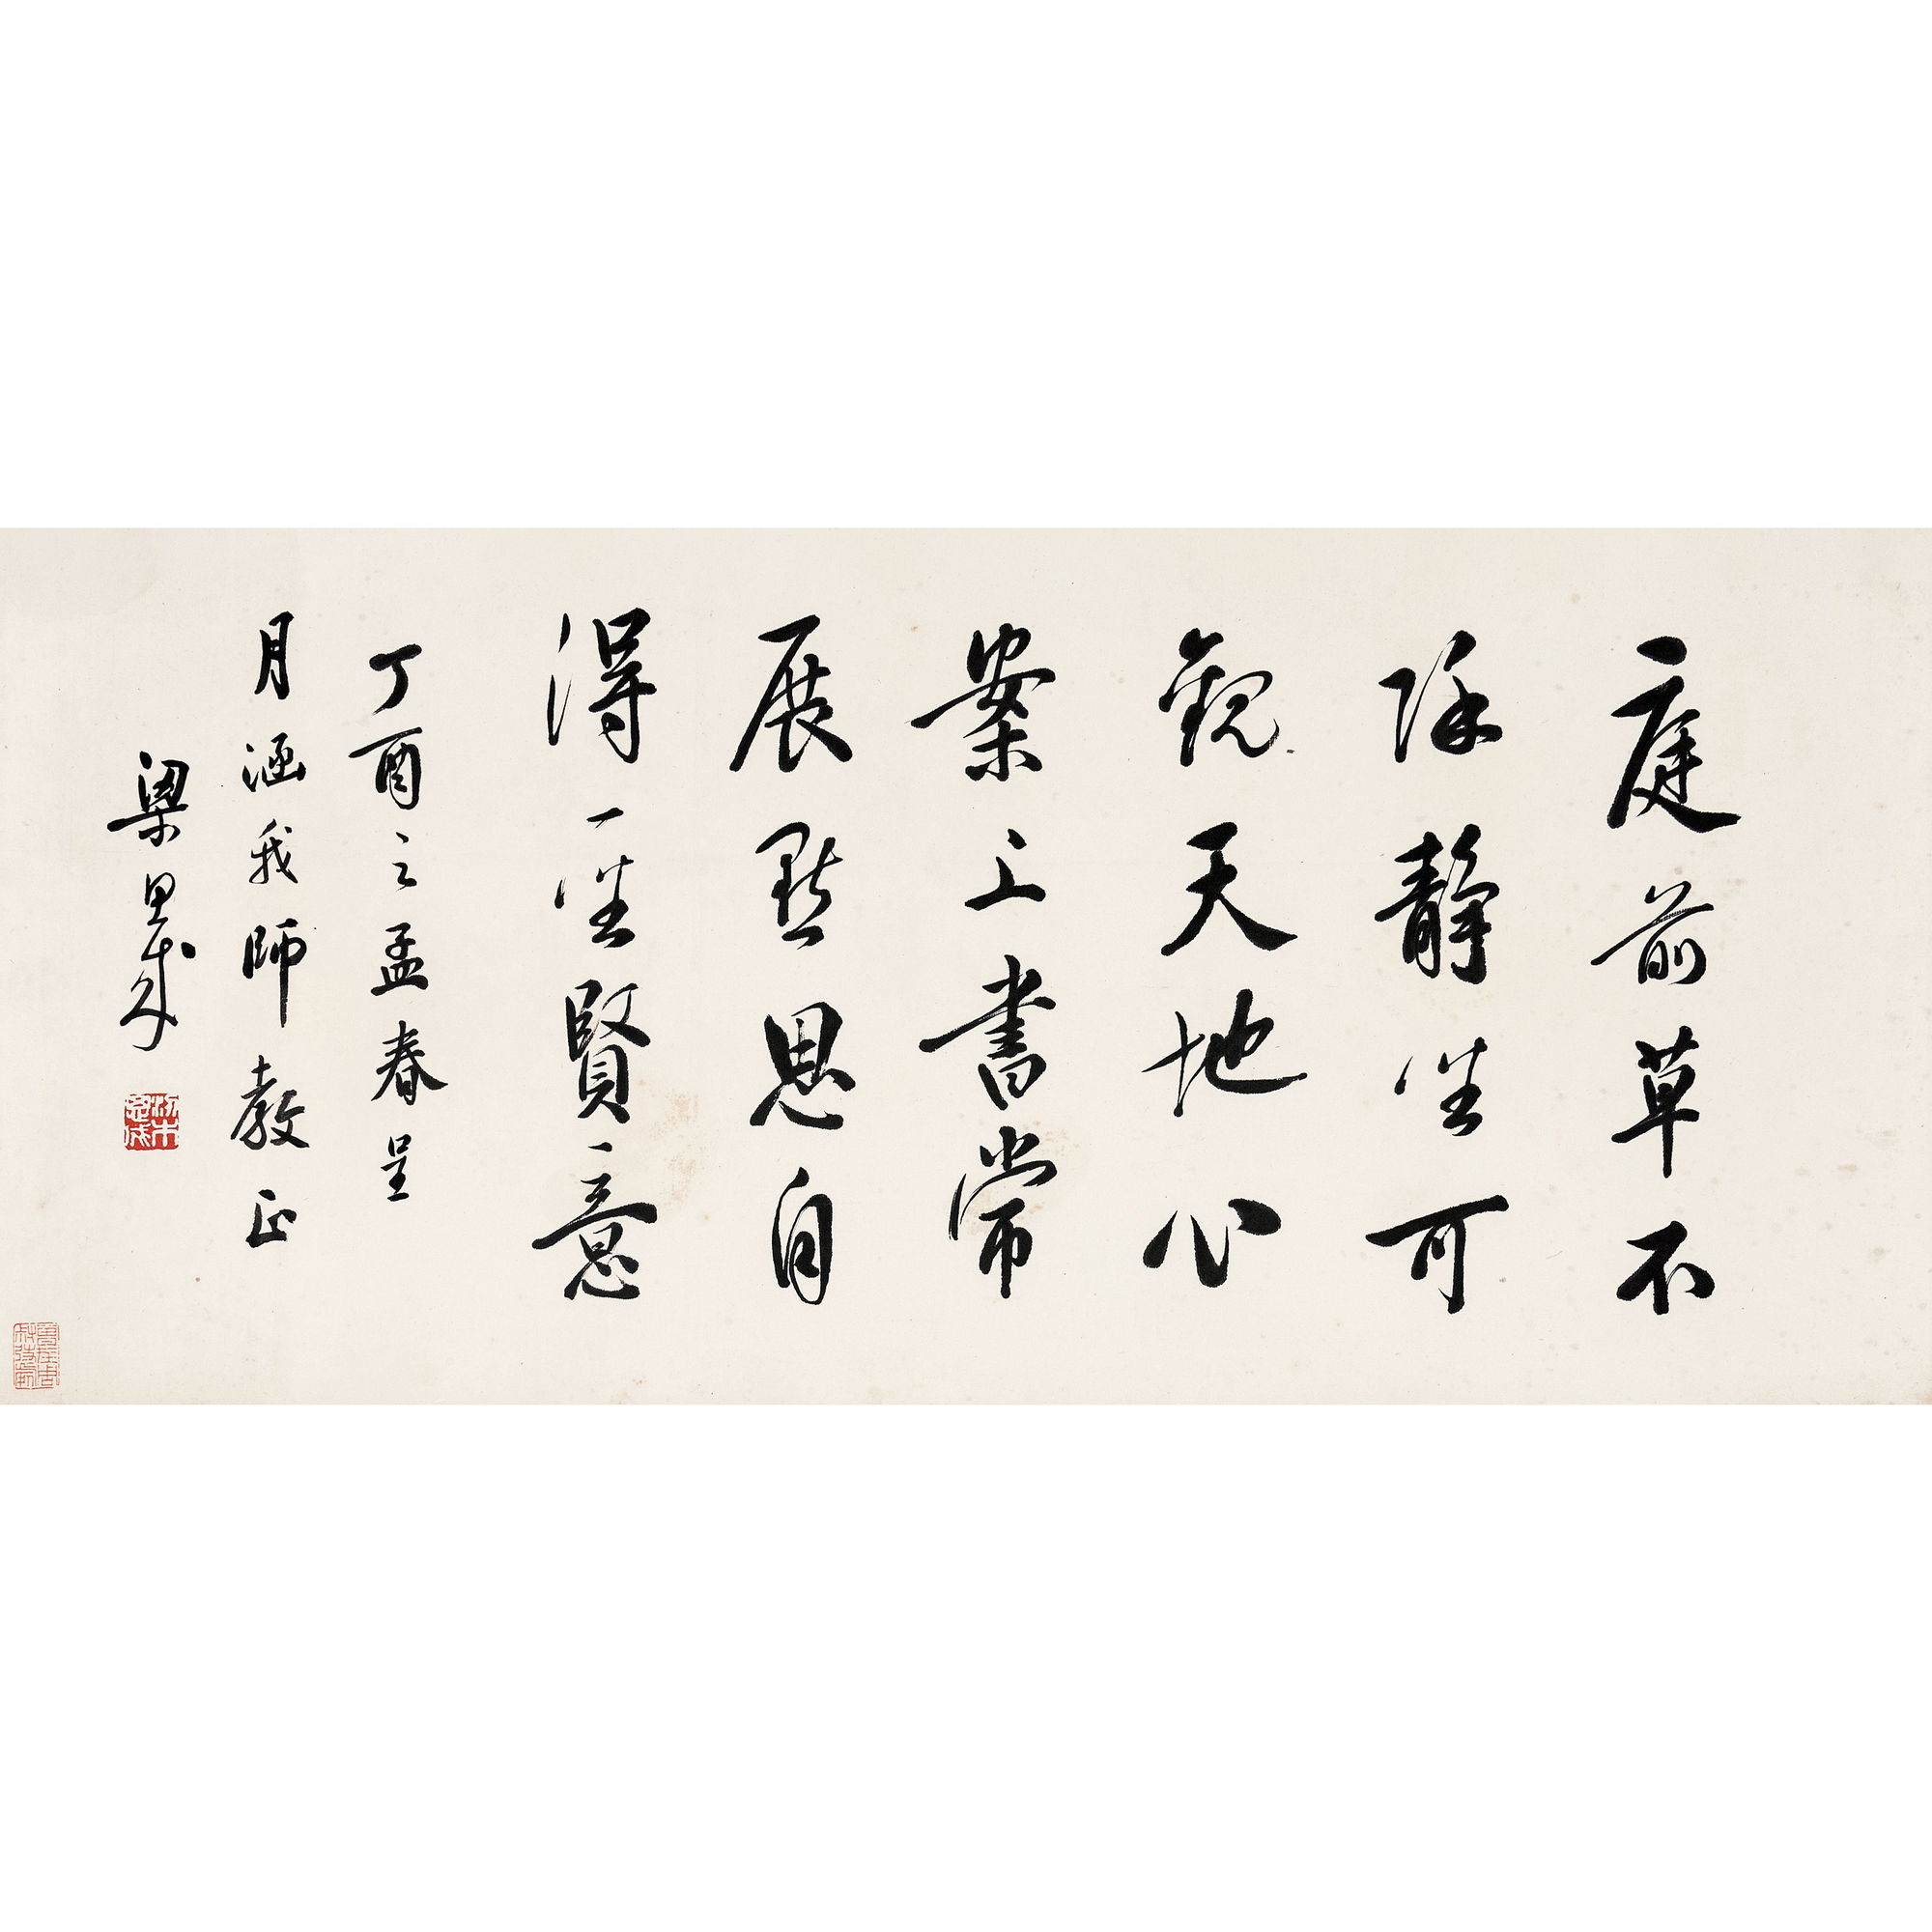 庭前草不
除靜坐可
觀天地心
案上書常
展默思自
得聖賢意
丁酉之孟春呈
月涵我師教正
梁思成
梁思成